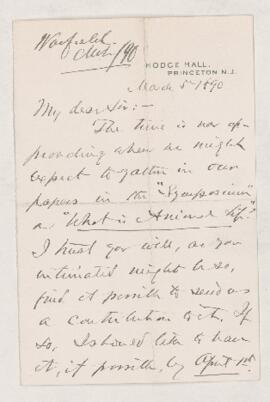 Warfield
Mch /90
HODGE HALL,
PRINCETON N.J.
March 5th 1890
My dear Sir:—
The time is now ap-
proaching when we might
expect to gather in our
papers in the "Symposium"
on "What is Animal Life?"
I trust you will, as you
intimated might be so,
find it possible to send us
a contribution to it. If
so, I should like to have
it, if possible, by April 1st.